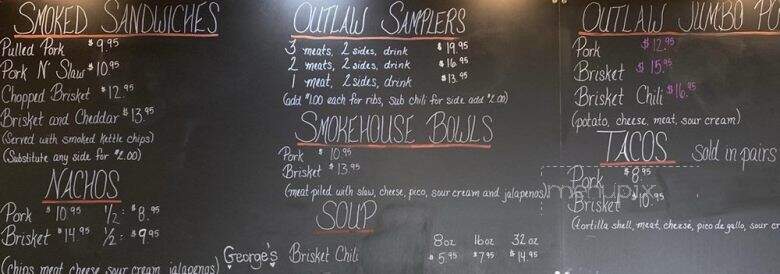 SMOKED SANDWICHES
Pulled Pork $9.95
Pork N' Slaw $10.95
Chopped Brisket $12.95
Brisket and Cheddar $13.95
(Served with smoked kettle chips)
(Substitute any side for $2.00)
NACHOS
Pork $10.95 1/2: $8.95
Brisket $14.95 1/2: $9.95
(chips meat cheese sour cream jalapenos)
OUTLAW SAMPLERS
3 meats, 2 sides, drink $19.95
2 meats, 2 sides, drink $16.95
1 meat, 2 sides, drink $13.95
(add $1.00 each for ribs, sub chili for side add $2.00)
SMOKEHOUSE BOWLS
Pork $10.95
Brisket $13.95
(meat piled with slaw, cheese, pico, sour cream and jalapenos)
SOUP
8oz 16oz 32oz
George's Brisket Chili $5.95 $7.95 $14.95
OUTLAW JUMBO
Pork $12.95
Brisket $15.95
Brisket Chili $16.95
(potato, cheese, meat, sour cream)
TACOS sold in pairs
Pork $8.95
Brisket $10.95
(tortilla shell, meat, cheese, pico de gallo, sour
menupix